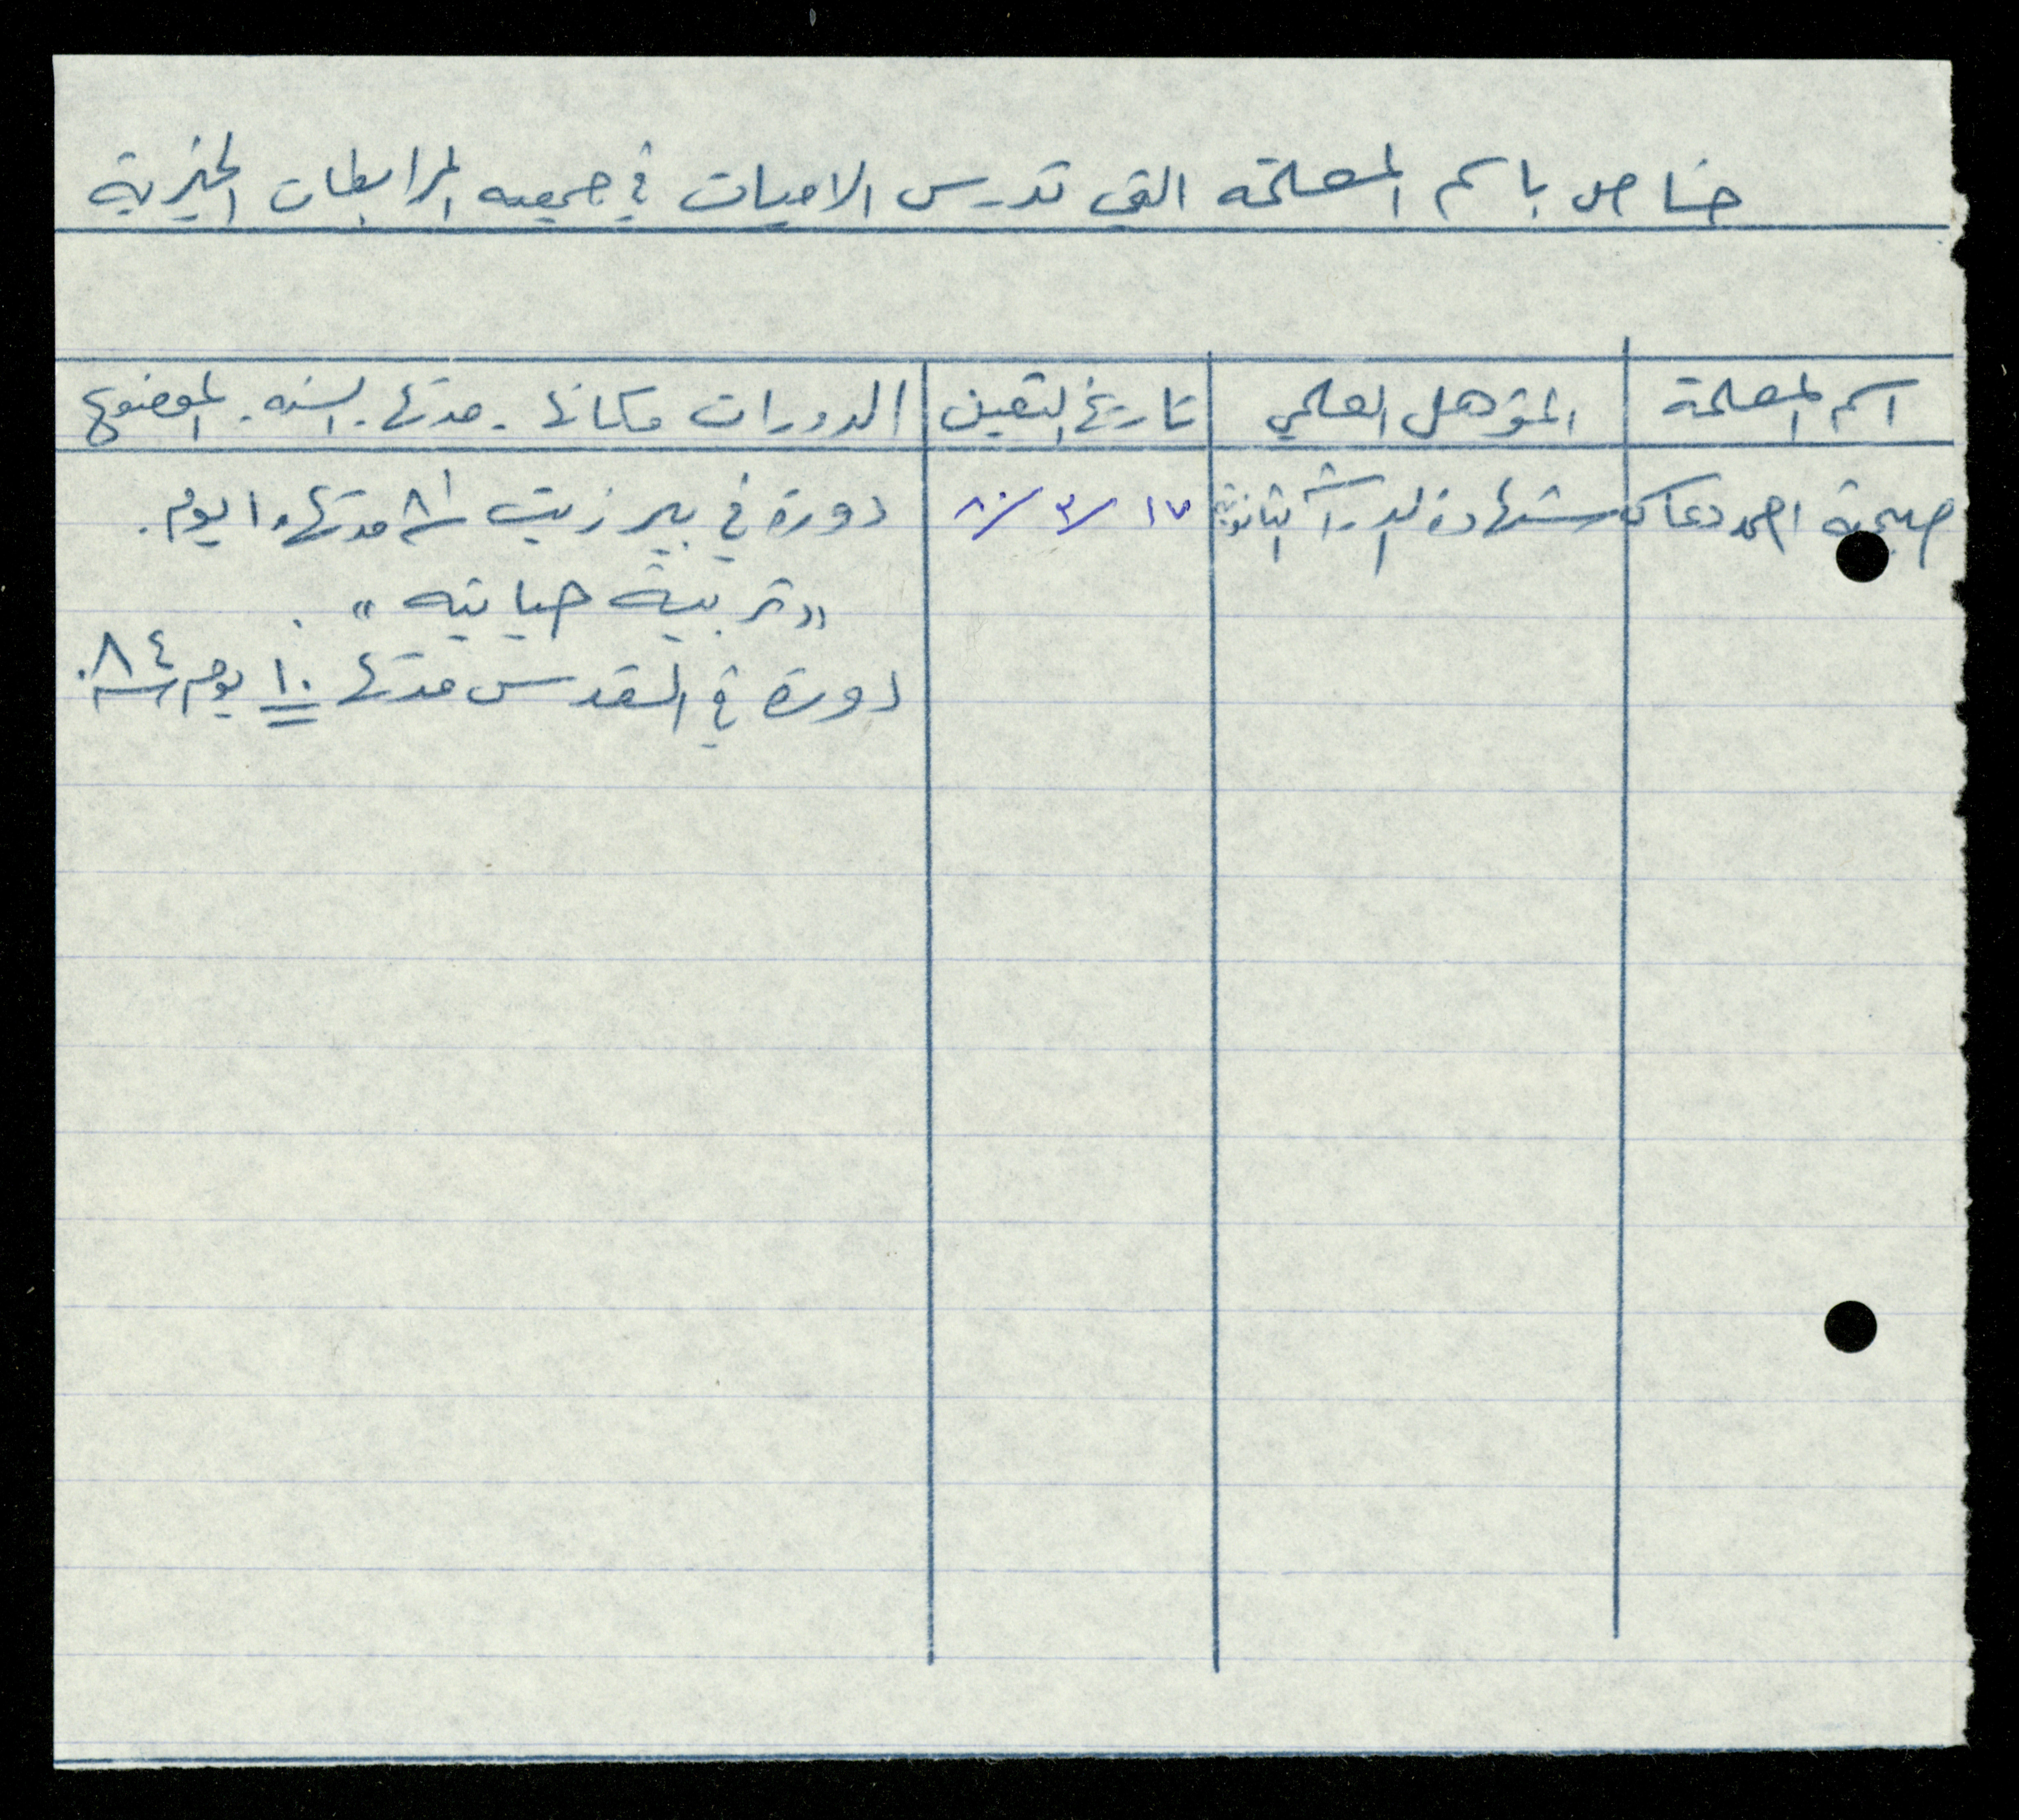 خاص باسم المعلمة التي تدرس الاميات في جمعيه المرابطات الخيرية
اسم المعلمة
المؤهل العلمي
تاريخ التعين
الدورات مكانها . مدتها . السنه . الموضوع
صبحية احمد دعاس
شهادة الدراسة الثانوية
١٧ / ٣ / ٨٠
دورة في بير زيت ٨١ مدتها ١٠ يوم .
"تربية حياتيه" .
دورة في القدس مدتها ١٠ يوم ٨٤ .